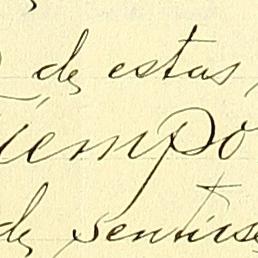 de estas,
tiempo
de sentirse